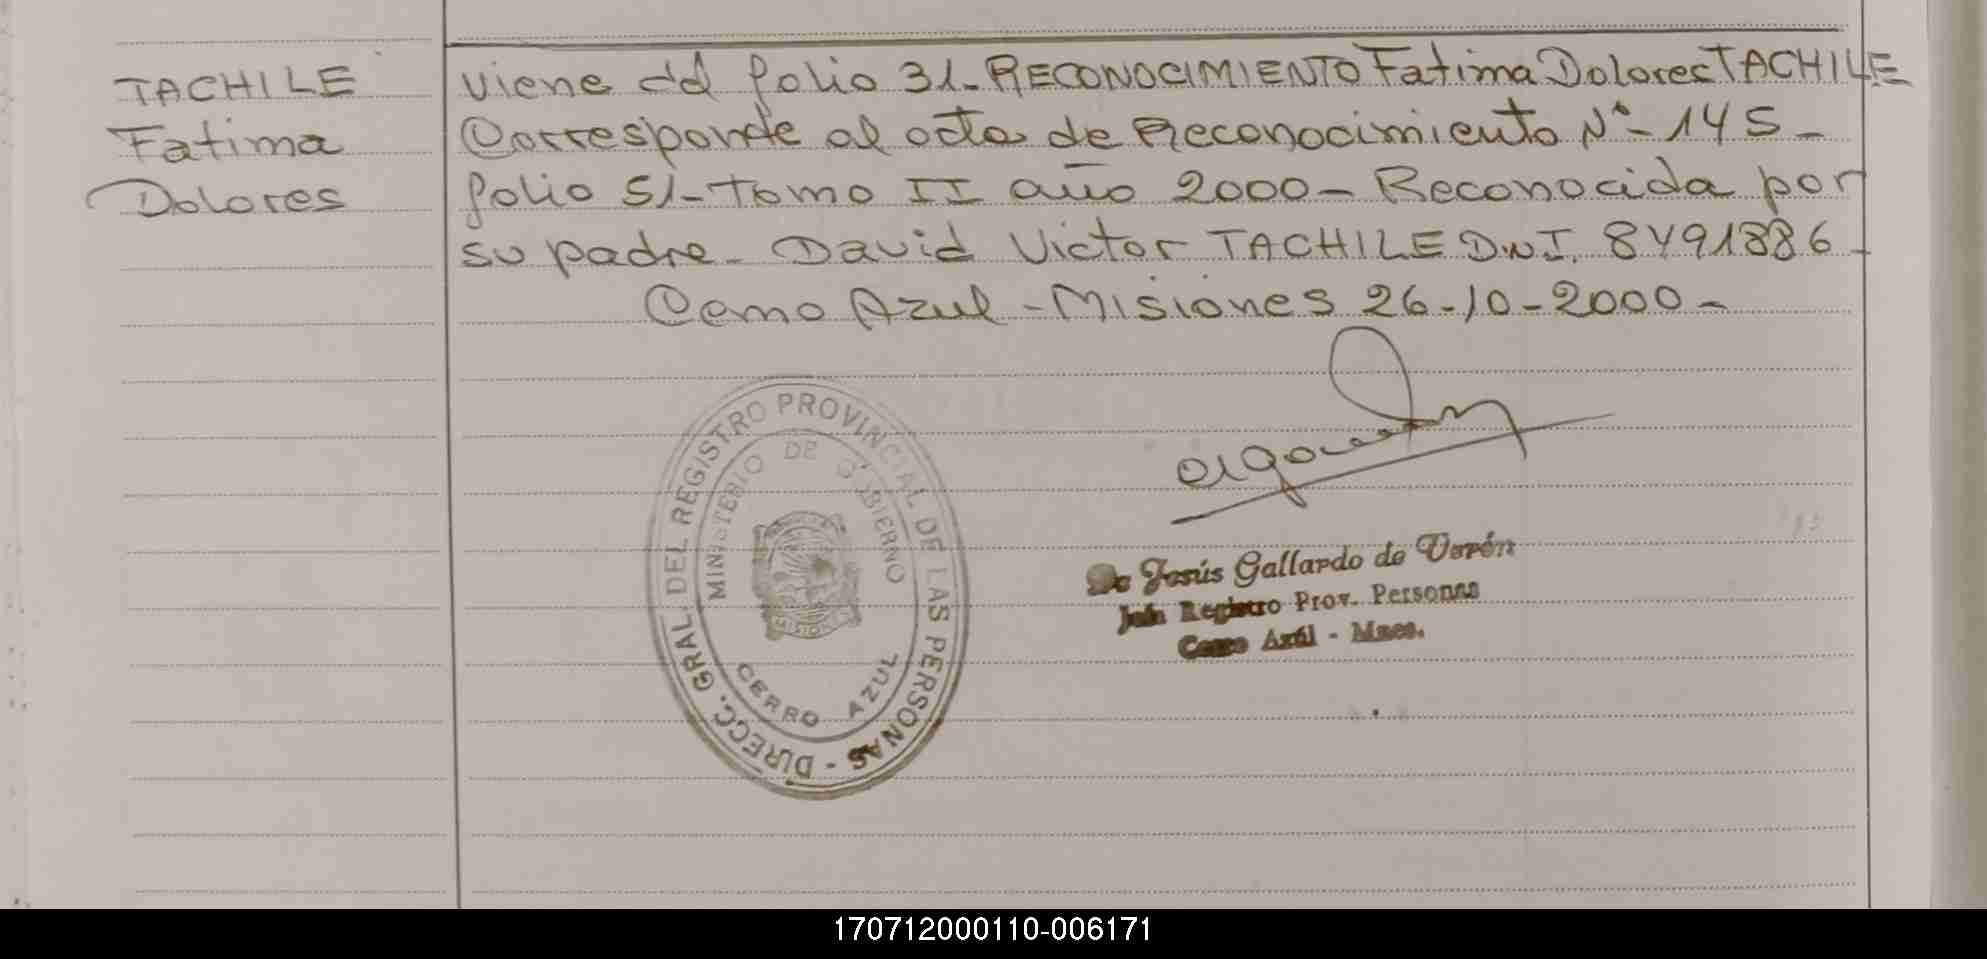 TACHILE
Fatima
Dolores
Viene del folio 31_ RECONOCIMIENTO Fatima Dolores TACHILE
Corresponde al acta de Reconocimiento Nº_ 145_
folio 51_ Tomo II año 2000_ Reconocida por
su padre_ David Victor TACHILE D.N.I. 8491886_
Cerro Azul - Misiones 26-10-2000_
DIRECC. GRAL. DEL REGISTRO PROVINCIAL DE LAS PERSONAS -
MINISTERIO DE GOBIERNO
MISIONES
CERRO AZUL
De Jesús Gallardo de Verón
Jefa Registro Prov. Personas
Cerro Azúl - Mnes.
170712000110-006171